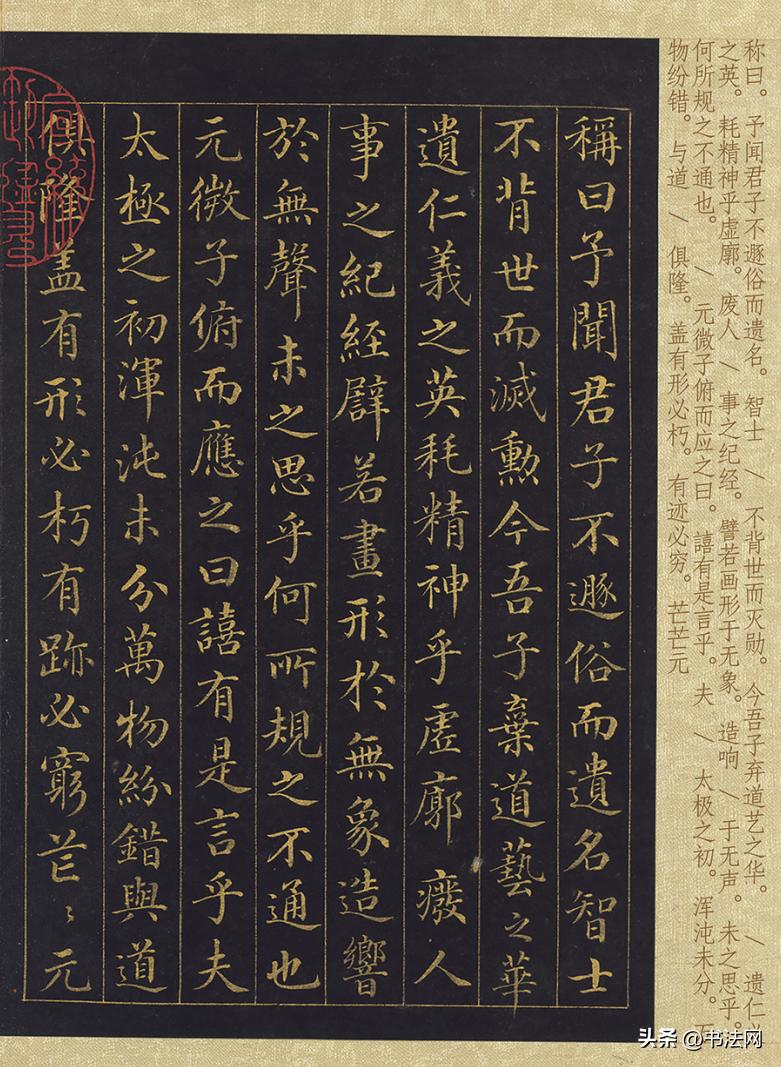 称曰。予闻君子不遯俗而遗名。智士 / 不背世而灭勋。今吾子弃道艺之华。 / 遗仁义
之英。耗精神乎虚廓。废人 / 事之纪经。譬若画形于无象。造响 / 于无声。未之思乎。
何所规之不通也。 / 元微子俯而应之曰。譆有是言乎。夫 / 太极之初。浑沌未分。万
物纷错。与道 / 俱隆。盖有形必朽。有迹必穷。芒芒元
稱曰予聞君子不遯俗而遺名智士
不背世而滅勲今吾子棄道藝之華
遺仁義之英耗精神乎虛廓癈人
事之紀經譬若畫形於無象造響
於無聲未之思乎何所規之不通也
元微子俯而應之曰譆有是言乎夫
太極之初渾沌未分萬物紛錯與道
俱隆盖有形必朽有跡必窮芒〻元
头条 @书法网